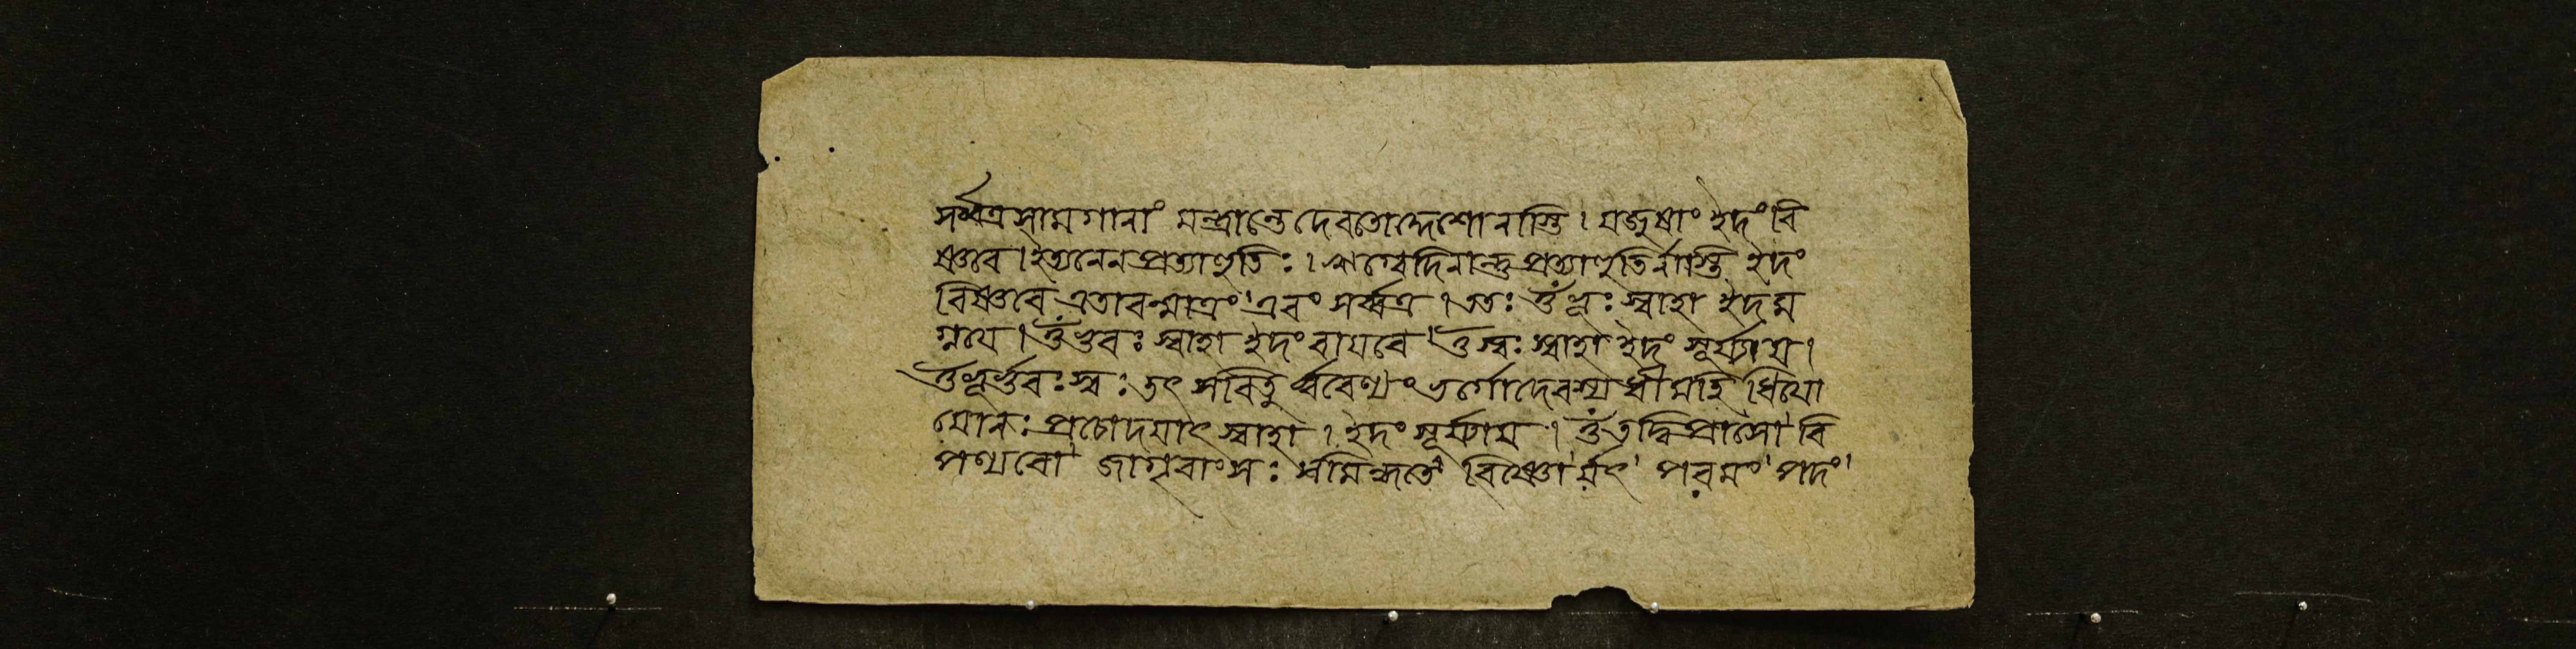 সর্ব্বত্র সামগানাং মন্ত্রান্তে দেবতোদ্দেশো নাস্তি । যজুষাং ইদং বি
ষ্ণবে । ইত্যনেন প্রত্যাহুতিঃ । ঋগ্বেদিনান্তু প্রত্যাহুতির্নাস্তি ইদং
বিষ্ণবে এতাবন্মাত্রং এবং সর্ব্বত্র । ততঃ ওঁ ভূঃ স্বাহা ইদম
গ্নয়ে । ওঁ ভুবঃ স্বাহা ইদং বায়বে । ওঁ স্বঃ স্বাহা ইদং সূর্য্যায় ।
ওঁ ভূর্ভুবঃ স্বঃ তৎ সবিতুর্ব্বরেণ্যং ভর্গো দেবস্য ধীমহি ধিয়ো
যো নঃ প্রচোদয়াৎ স্বাহা । ইদং সূর্য্যায় । ওঁ তদ্বিপ্রাসো বি
পণ্যবো জাগৃবাংসঃ সমিন্ধতে বিষ্ণোর্যৎ পরমং পদং